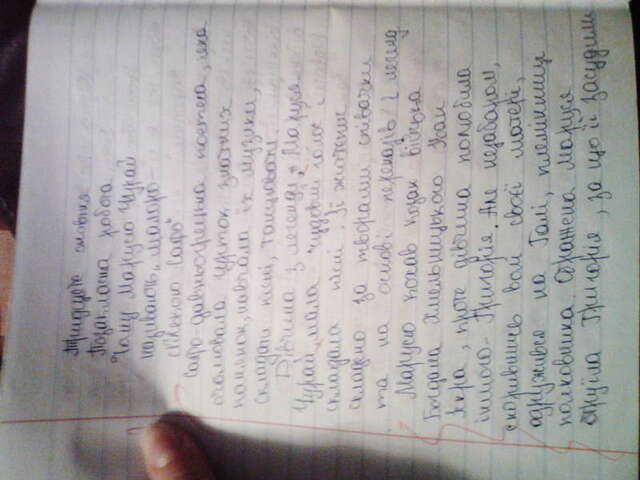 Тридцяте жовтня
Позакласна робота
"Чому Марусю Чурай
називають „малоро-
сійською Сафо"
Сафо-давньогрецька поетеса, яка
очолювала гурток знатних
панянок, навчала їх музики,
складати пісні, танцювати.
Дівчина з легенд, Маруся
Чурай, мала чудовий голос і
складала пісні. Її життєпис
складено за творами співачки
та на основі переказів і легенд
Марусю кохав козак війська
Богдана Хмельницького Іван
Іскра, проте дівчина полюбила
іншого-Григорія. Але незабаром,
скорившись волі своєї матері,
одружився на Галі, племінниці
полковника. Ображена Маруся
отруїла Григорія, за що її засудили